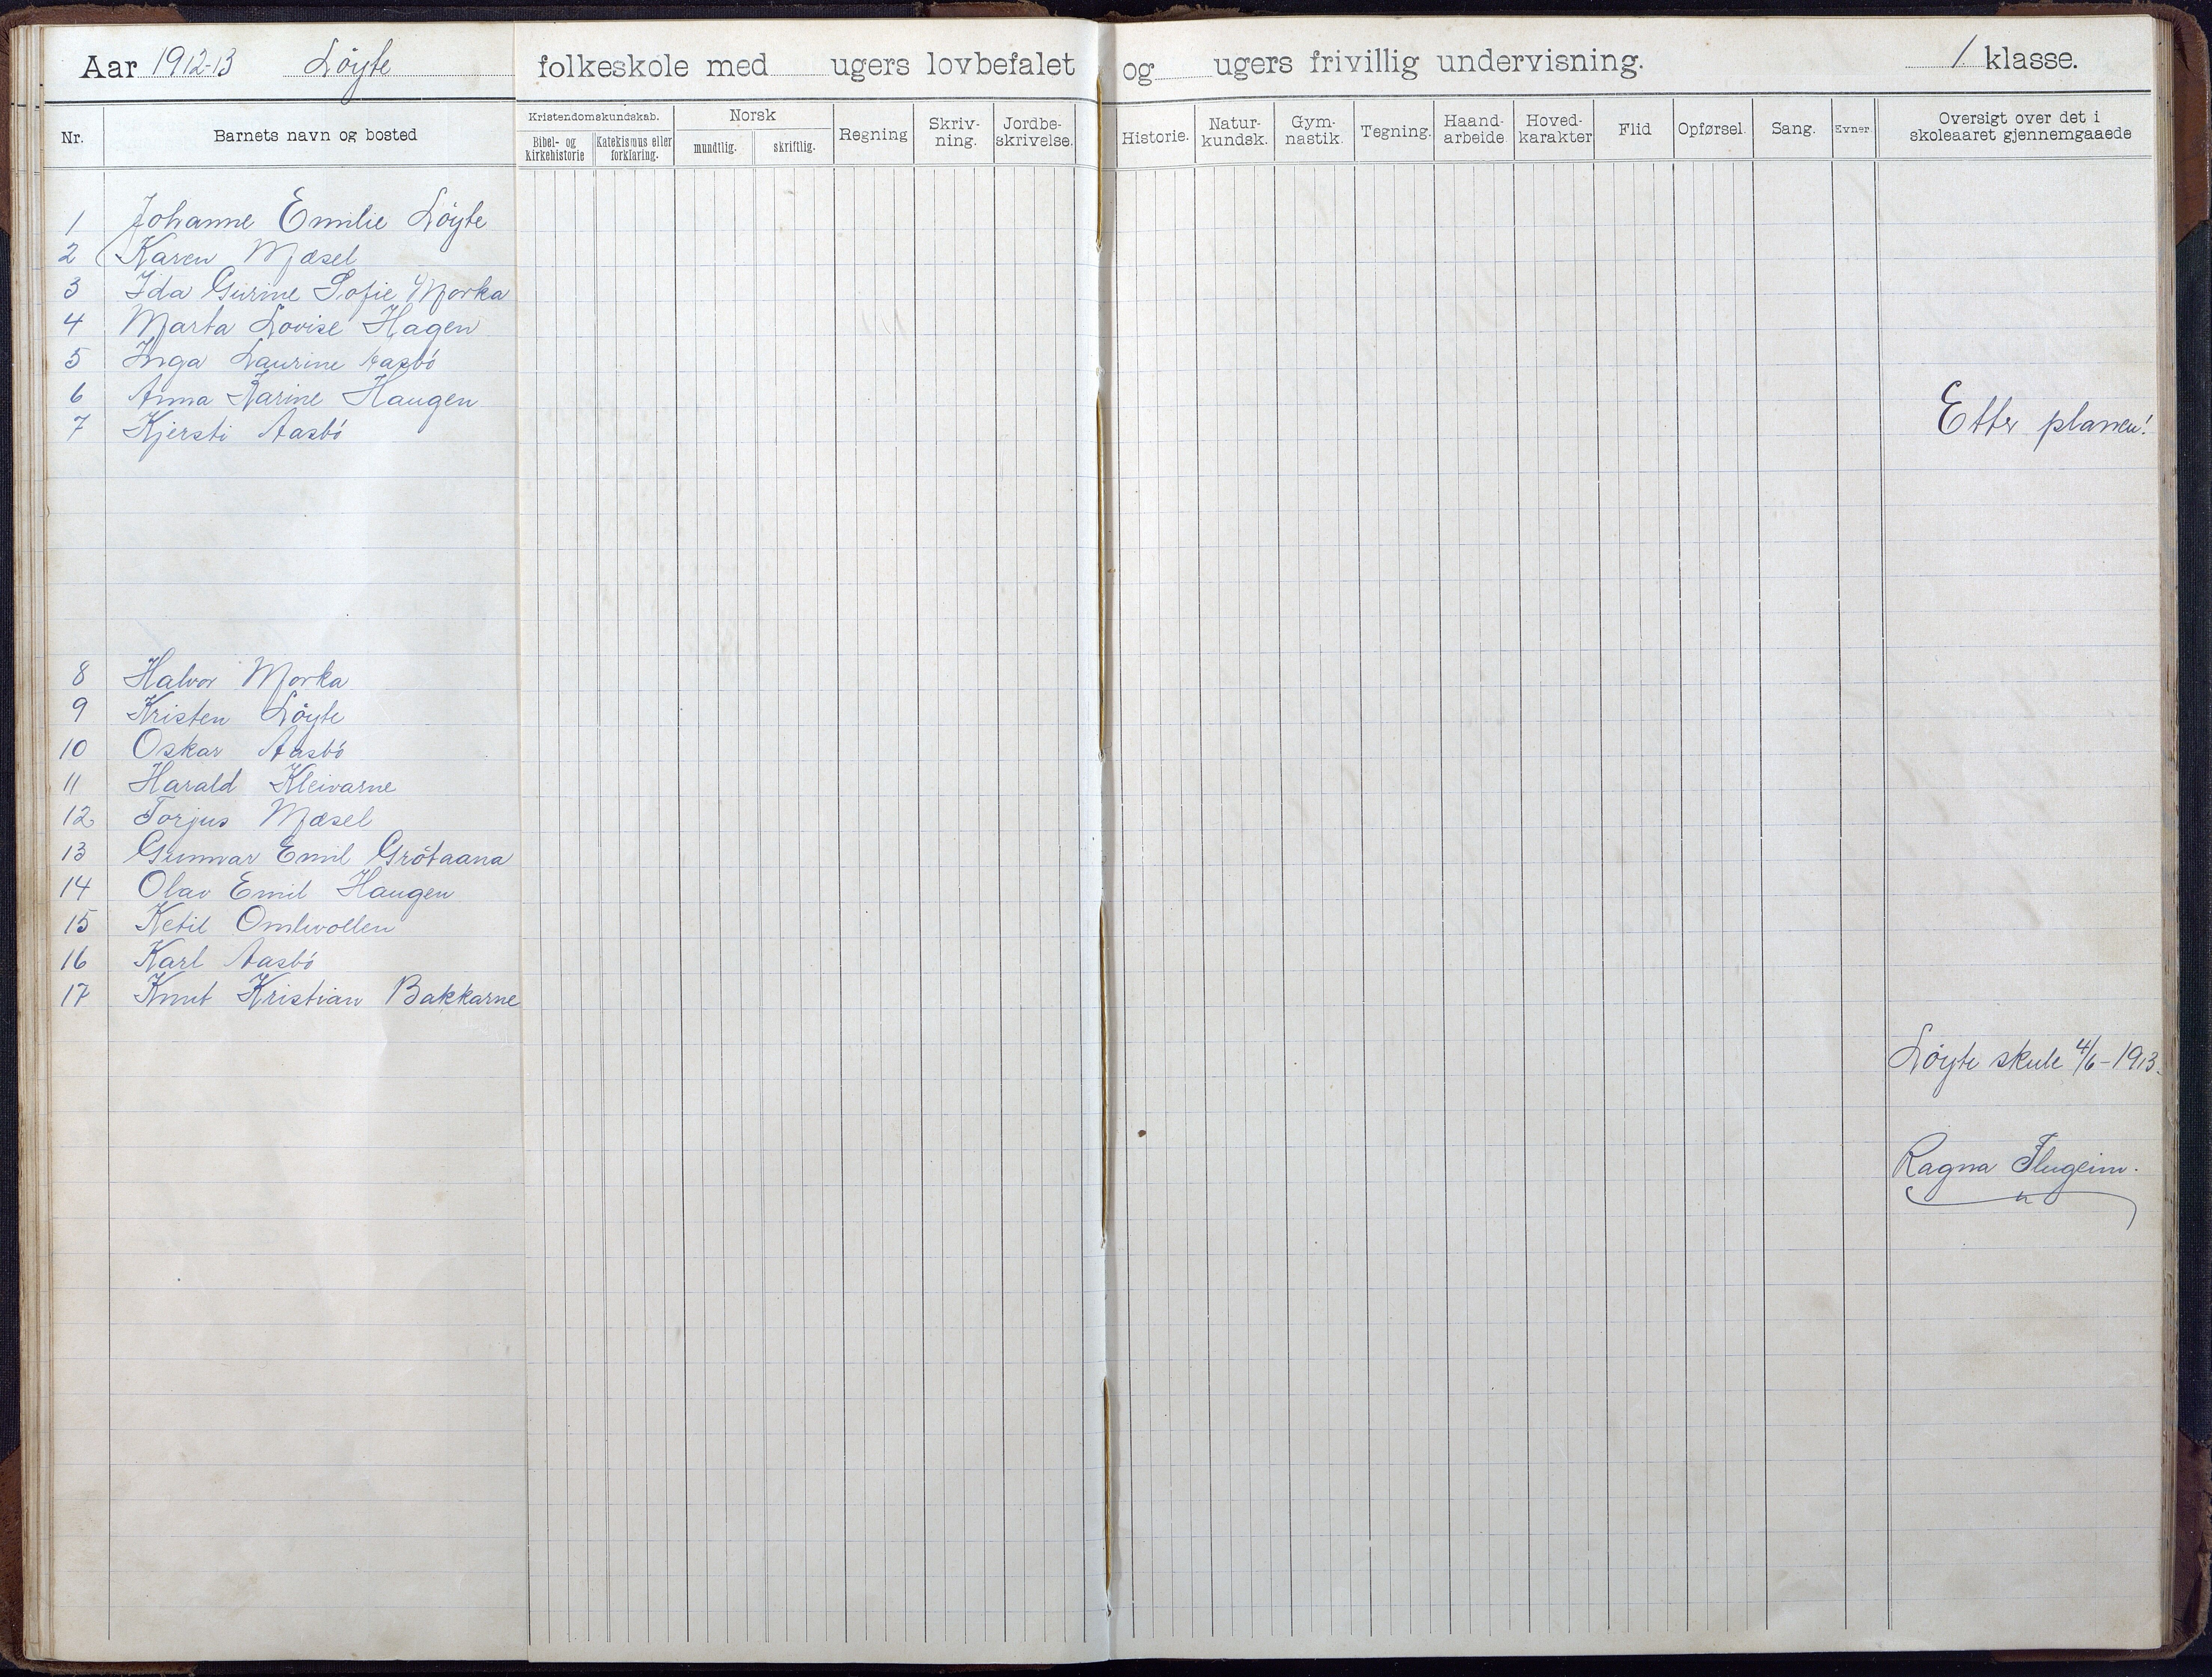 Aar 1912-13 Löyte folkeskole med ugers lovbefalet og ugers frivillig undervisning. 1 klasse.
Nr. Barnets navn og bosted Kristendomskundskab. Bibel- og kirkehistorie Katekismus eller forklaring. Norsk mundtlig. skriftlig. Regning Skriv-ning. Jordbe-skrivelse. Historie. Natur-kundsk. Gym-nastik. Tegning. Haand-arbeide Hoved-karakter Flid Opførsel. Sang. Evner Oversigt over det i skoleaaret gjennemgaaede
1 Johanne Emilie Löyte
2 Karen Mæsel
3 Ida Gurine Sofie Morka
4 Marta Lovise Hagen
5 Inga Laurine Aasbö
6 Anna Karine Haugen
7 Kjersti Aasbö
Etter planen!
8 Halvor Morka
9 Kristen Löyte
10 Oskar Aasbö
11 Harald Kleivarne
12 Torjus Mæsel
13 Gunnar Emil Grötaana
14 Olav Emil Haugen
15 Ketil Omlivollen
16 Karl Aasbö
17 Knut Kristian Bakkarne
Löyte skule 4/6-1913.
Ragna Flugeim.